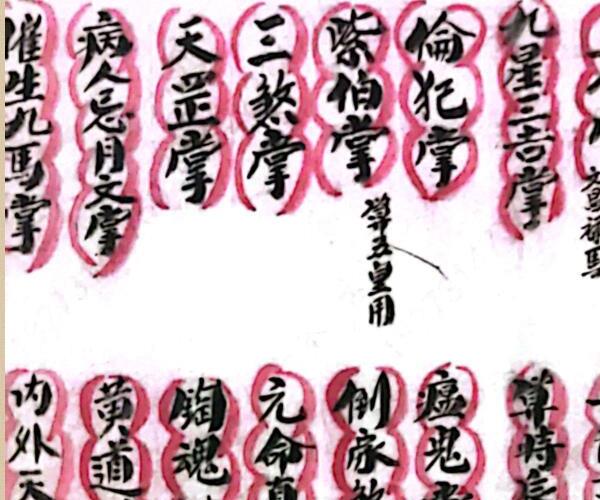 九星三吉掌
倫犯掌
紫伯掌
算五皇用
三煞掌
天罡掌
病人忌月文掌
催生九馬掌
算時
瘟鬼
倒家
元命
魂
黃道
內外天